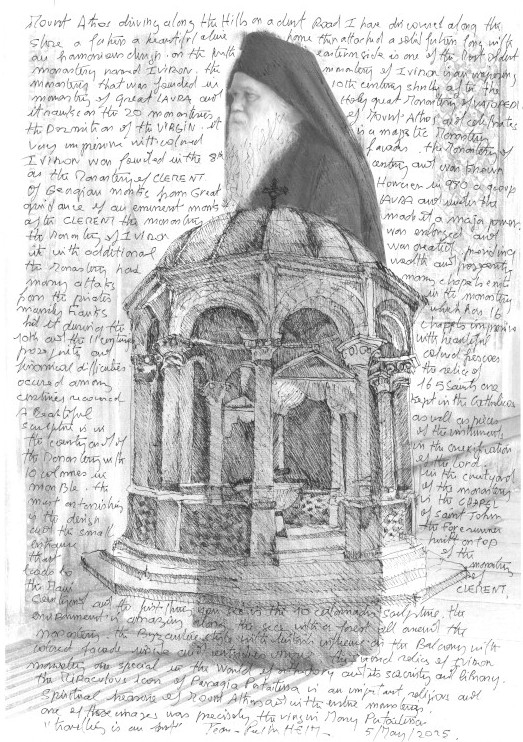 Mount Athos driving along the Hills on a dirt Road I have discovered along the
shore a a beautiful home then attached a solid long with
an harmonious church. on the North eastern side is one of the Most oldest
monastery named IVIRON. the monastery of IVIRON is an
monastery that was founded in 10th century shortly after the
monastery of Great LAVRA and Holy great Monastery of VATOPEDI
it ranks on the 20 monasteries of Mount Athos and celebrates
the Dormition of the VIRGIN. it is a majestic Monastery
very impressive with colored facades. the Monastery of
IVIRON was founded in the 8th century and was known
as the Monastery of CLEMENT However in 980 a group
of Georgian monks from Great LAVRA and under the
guidance of an eminent monk made it a major power
after CLEMENT the monastery was enlarged and
the Monastery of IVIRON was greatly providing
it with additional wealth and prosperity
the Monastery had many chapels exists
many attacks in the monastery
from the pirates which has 16
mainly Franks chapels impressive
hit it during the with beautiful
10th and the 11 century colored frescoes
prosperity and the relics of
financial difficulties 165 Saints are
occured among kept in the Catholicon
centuries as well as pieces
A beautiful of the instruments
sculpture is in in the crucifixion
the courtyard of of the Lord
the Monastery with in the courtyard
10 columns in of the monastery
marble. the is the CHAPEL
most astonishing of Saint John
is the design the Forerunner
and the small built on top
entrance of the
that monastery
leads to of
the Main CLEMENT.
courtyard and the first thing you see is the 10 columns sculpture. the
environment is amazing along the sea with a forest all around the
monastery. the Byzantine style with influence in the Balcony with
colored facade unique and relics of Iviron
monastery are special in the World of orthodoxy and its sanctity and library.
the Miraculous icon of Panagia Portaitissa is an important religious and
spiritual treasure of Mount Athos and with the entire monastery.
one of these images was precisely the virgin Mary Portaitissa
"travelling is an art" Jean-Paul HEIM - 5/May/2025.